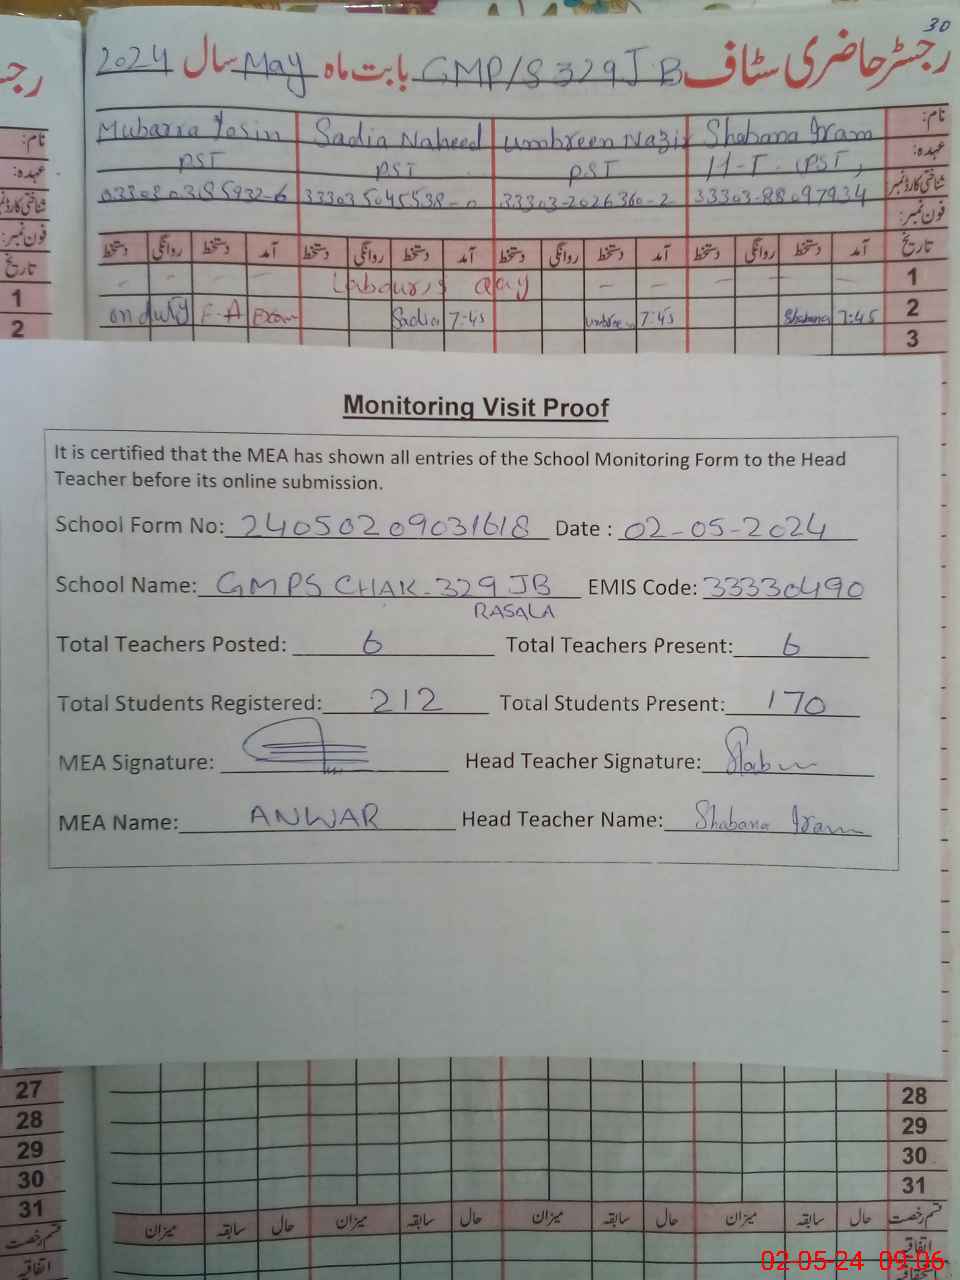 30
رجسٹر حاضری سٹاف GMP/S 329 JB بابت ماہ May سال 2024
نام: Shabana Iram Umbreen Nazir Sadia Naheed Mubarra Yasin
عہدہ: H-T (PST) PST PST PST
شناختی کارڈ نمبر 33303-88097934 33303-2026360-2 333035045538-0
فون نمبر:
تاریخ آمد دستخط روانگی دستخط آمد دستخط روانگی دستخط آمد دستخط روانگی دستخط آمد دستخط روانگی دستخط
1 Labour,s day
2 7:45 Shabana 7:45 Umbreen 7:45 Sadia on duty E-A Exam
3
Monitoring Visit Proof
It is certified that the MEA has shown all entries of the School Monitoring Form to the Head
Teacher before its online submission.
School Form No: 24050209031618 Date : 02-05-2024
School Name: GMPS CHAK-329 JB EMIS Code: 33330490
RASALA
Total Teachers Posted: 6 Total Teachers Present: 6
Total Students Registered: 212 Total Students Present: 170
MEA Signature: Head Teacher Signature:
MEA Name: ANWAR Head Teacher Name: Shabana Iram
27
28 28
29 29
30 30
31 31
قسم رخصت حال سابقہ میزان حال سابقہ میزان حال سابقہ میزان حال سابقہ میزان
اتفاقیہ
02-05-24 09:06